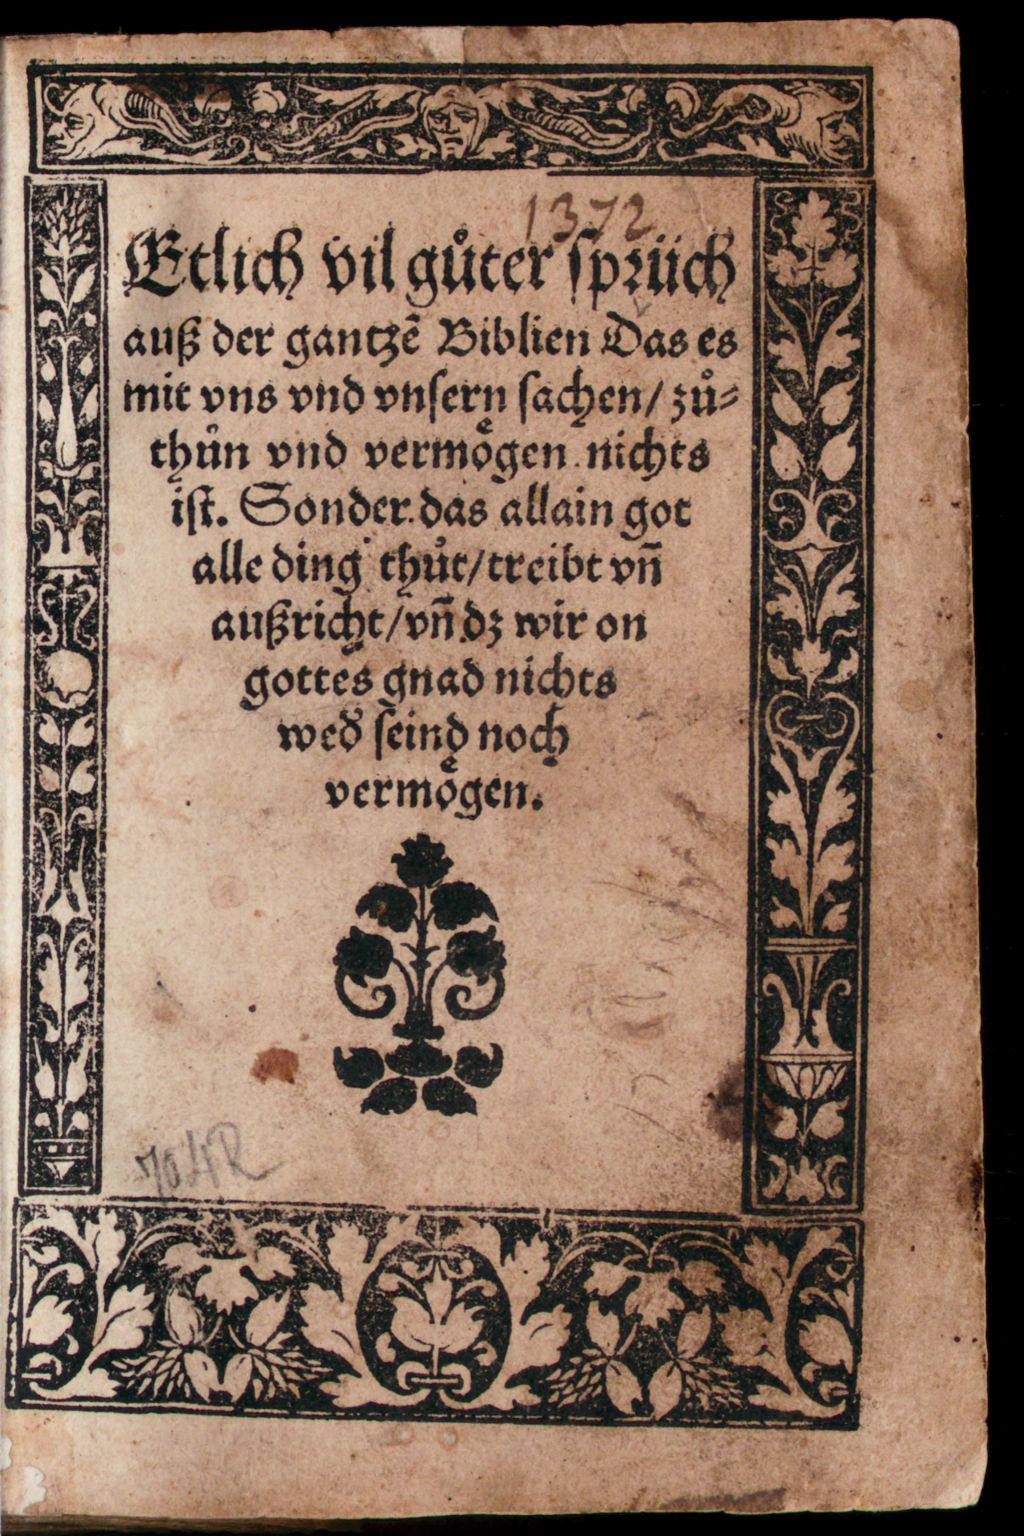 1372
Etlich vil gůter ſprüch
auß der gantzē Biblien Das es
mit vns vnd vnſern ſachen/ zů⸗
thůn vnd vermoͤgen nichts
iſt. Sonder das allain got
alle ding thůt/treibt vñ
außricht/vñ dz wir on
gottes gnad nichts
wed̛ ſeind noch
vermoͤgen.